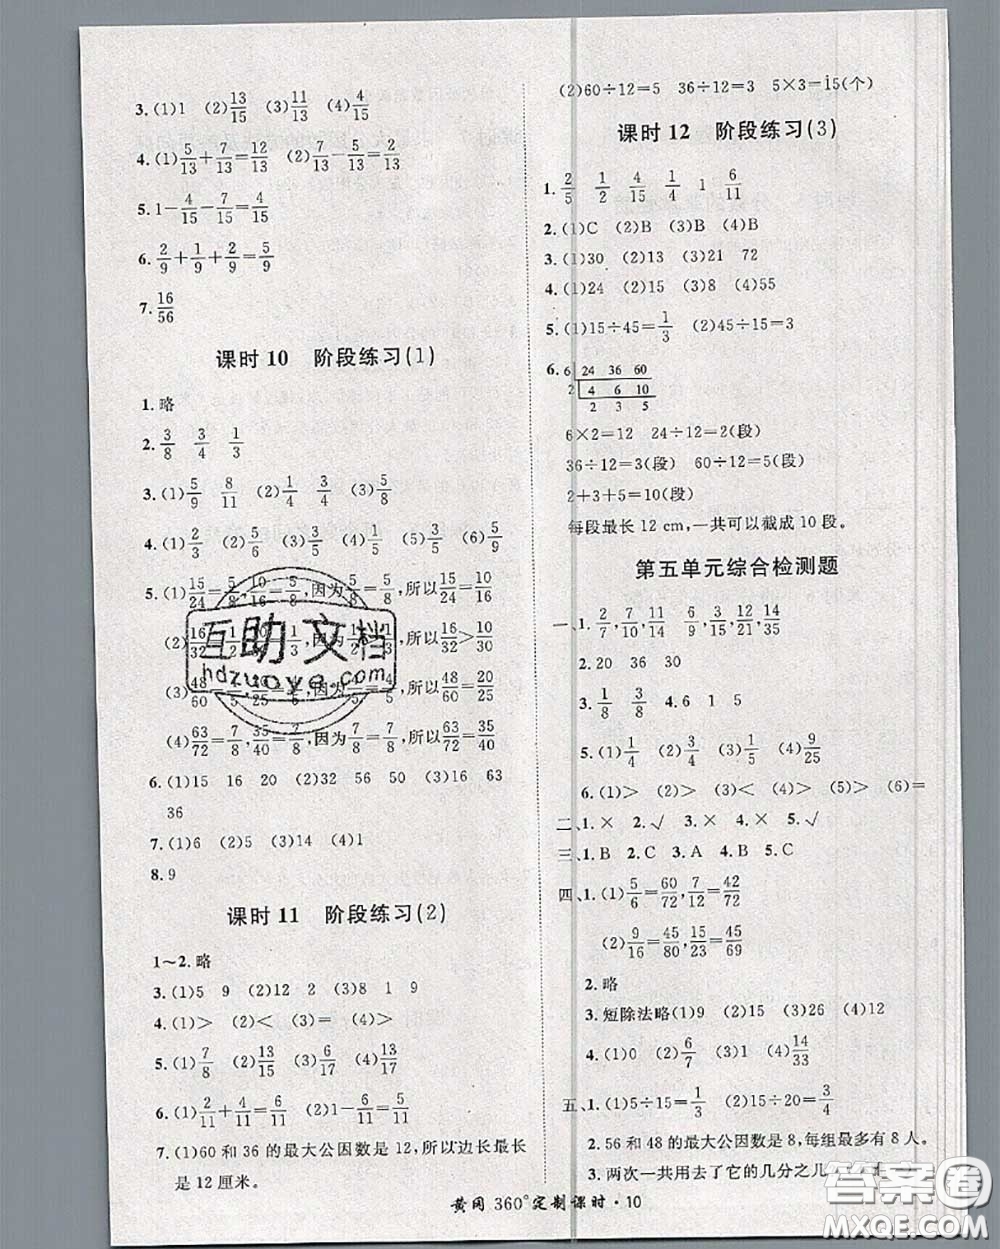 3.(1)1 (2)13/15 (3)11/13 (4)4/15
4.(1)5/13+7/13=12/13 (2)7/13-5/13=2/13
5.1-4/15-7/15=4/15
6.2/9+1/9+2/9=5/9
7.16/56
课时10 阶段练习(1)
1.略
2.3/8 3/4 1/3
3.(1)5/9 8/11 (2)1/4 3/4 (3)5/8
4.(1)2/3 (2)5/6 (3)1/3 (4)1/5 (5)3/4 (6)5/9
5.(1)15/24=5/8,10/16=5/8,因为5/8=5/8,所以15/24=10/16
所以16/32>10/30
所以48/60=20/25
(4)63/72=7/8,35/40=7/8,因为7/8=7/8,所以63/72=35/40
6.(1)15 16 20 (2)32 56 50 (3)16 63
36
7.(1)6 (2)5 (3)14 (4)1
8.9
课时11 阶段练习(2)
1~2.略
3.(1)5 9 (2)12 2 (3)8 1 9
4.(1)> (2)< (3)= (4)>
5.(1)7/8 (2)13/15 (3)6/17 (4)13/17
6.(1)2/11+4/11=6/11 (2)1-6/11=5/11
7.(1)60和36的最大公因数是12,所以边长最长
是12厘米。
(2)60÷12=5 36÷12=3 5×3=15(个)
课时12 阶段练习(3)
1.2/5 1/2 4/15 1/4 1 6/11
2.(1)C (2)B (3)B (4)B
3.(1)30 (2)13 (3)21 72
4.(1)24 (2)15 (3)8 (4)55
5.(1)15÷45=1/3 (2)45÷15=3
6. 6 24 36 60
2 4 6 10
2 3 5
6×2=12 24÷12=2(段)
36÷12=3(段) 60÷12=5(段)
2+3+5=10(段)
每段最长12 cm,一共可以截成10段。
第五单元综合检测题
一、1.2/7,7/11 6/15,3/12,14/35
2.20 36 30
3.1/8 3/8 4.6 1 5
5.(1)1/4 (2)3/4 (3)1/5 (4)9/25
6.(1)> (2)> (3)> (4)< (5)> (6)=
二、1.× 2.√ 3.× 4.× 5.√
三、1.B 2.C 3.A 4.B 5.C
四、1.(1)5/6=60/72,7/12=42/72
(2)9/16=45/80,15/23=45/69
2.略
3.短除法略(1)9 (2)15 (3)26 (4)12
4.(1)0 (2)6/7 (3)1 (4)14/33
五、1.(1)5÷15=1/3 (2)15÷20=3/4
2.56和48的最大公因数是8,每组最多有8人。
3.两次一共用去了它的几分之几
黄冈360°定制课时·10
互助文档
hdzuoye.com
答案圈
MXQE.COM